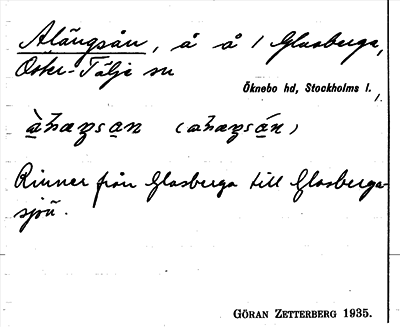 Alängsån, å å / Glasberga,
Öster-Tälje sn
Öknebo hd, Stockholms l.
Rinner från Glasberga till Glasberga-
sjön.
GÖRAN ZETTERBERG 1935.